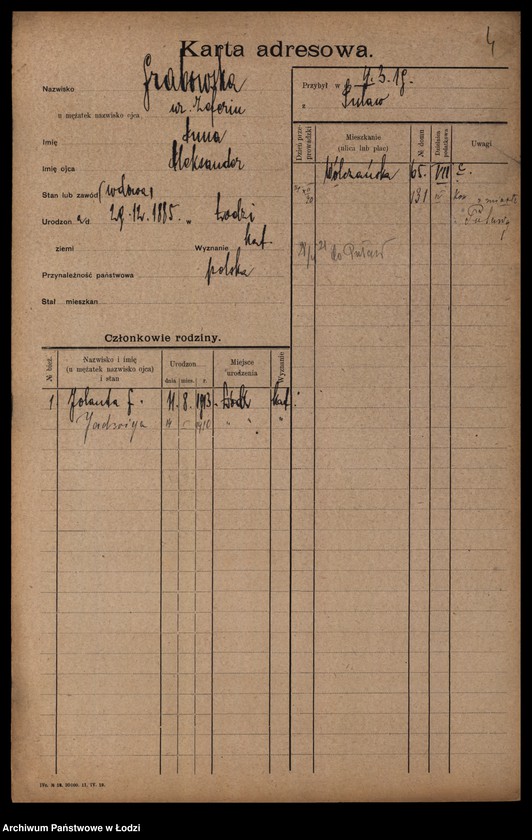 4
Karta adresowa.
Nazwisko Grabowska
u mężatek nazwisko ojca
Imię Anna
Imię ojca Aleksander
Stan lub zawód (wdowa)
Urodzon a d 29. 12. 1885. w Łodzi
ziemi Wyznanie kat.
Przynależność państwowa polska
Stał mieszkan
Przybył w 4. 3. 19.
z Puław
Dzień przeprowadzki
Mieszkanie (ulica lub plac)
№ domu
Dzielnica podatkowa
Uwagi
Wólczańska 65. VII c.
131
do Puław
Członkowie rodziny.
№ bież.
Nazwisko i imię (u mężatek nazwisko ojca) i stan
Urodzon.
dnia mies. r.
Miejsce urodzenia
Wyznanie
1. Jolanta c. 11. 8. 1913. Łódź kat.
Jadwiga 14 1910 " "
Archiwum Państwowe w Łodzi